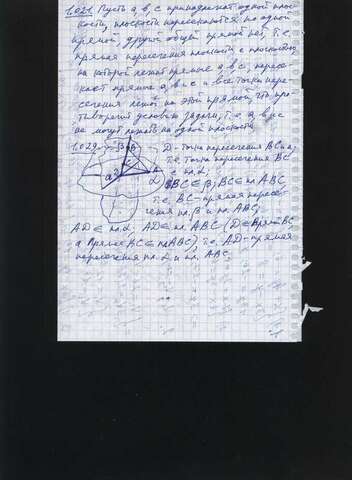 1.021. Пусть a, b, c принадлежат одной плос-
кости, плоскости пересекаются по одной
прямой, другой общей прямой нет, т.е.
прямая пересечения плоскости с плоскостью
на которой лежат прямые a, b и c, пересе-
кает прямые a, b и c и все точки пере-
сечения лежат на этой прямой, что про-
тиворечит условию задачи, т.е. a, b и c
не могут лежать на одной плоскости.
1.029. D - точка пересечения BC и a,
т.е. точка пересечения BC
с пл. α;
BC ∈ β; BC ∈ пл ABC
т.е. BC - прямая пересе-
чения пл. β и пл. ABC;
AD ∈ пл. α, AD ∈ пл. ABC (D ∈ прям BC
а прямая BC ∈ пл ABC), т.е. AD - прямая
пересечения пл. α и пл. ABC.